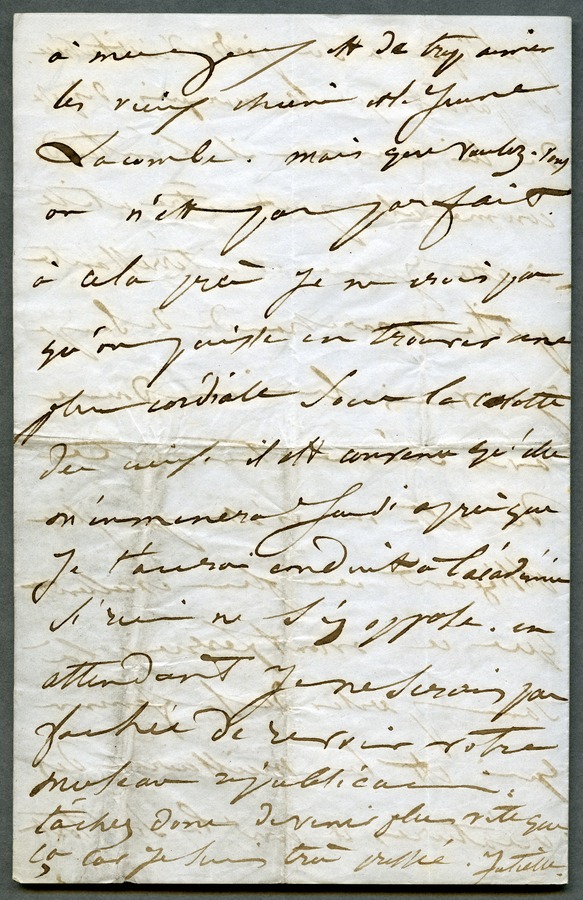 à mes yeux et de trop aimer
les vieux chênes et. Jeune
Lacombe. mais que voulez-vous
on n'est pas parfait.
à cela près je ne crois pas
qu'on puisse en trouver une
plus cordiale sous la calotte
des cieux. il est convenu qu'elle
m'emmenera Jeudi après que
Je t'aurai conduit à l'académie
si rien ne s'y oppose. en
attendant Je ne serais pas
fachée de revoir votre
museau républicain,
tâchez donc de venir plus vite que
ça car Je suis très pressée. Juliette